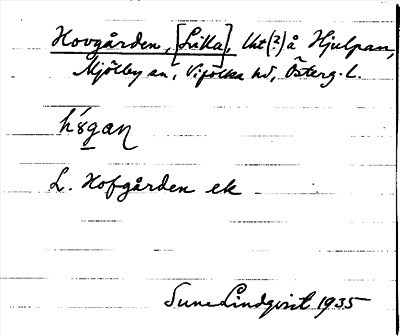 Hovgården, [Lilla], lht(?) å Hjulpan,
Mjölby sn, Vifolka hd, Österg. L.
L. Hofgården ek
Sune Lindqvist 1935